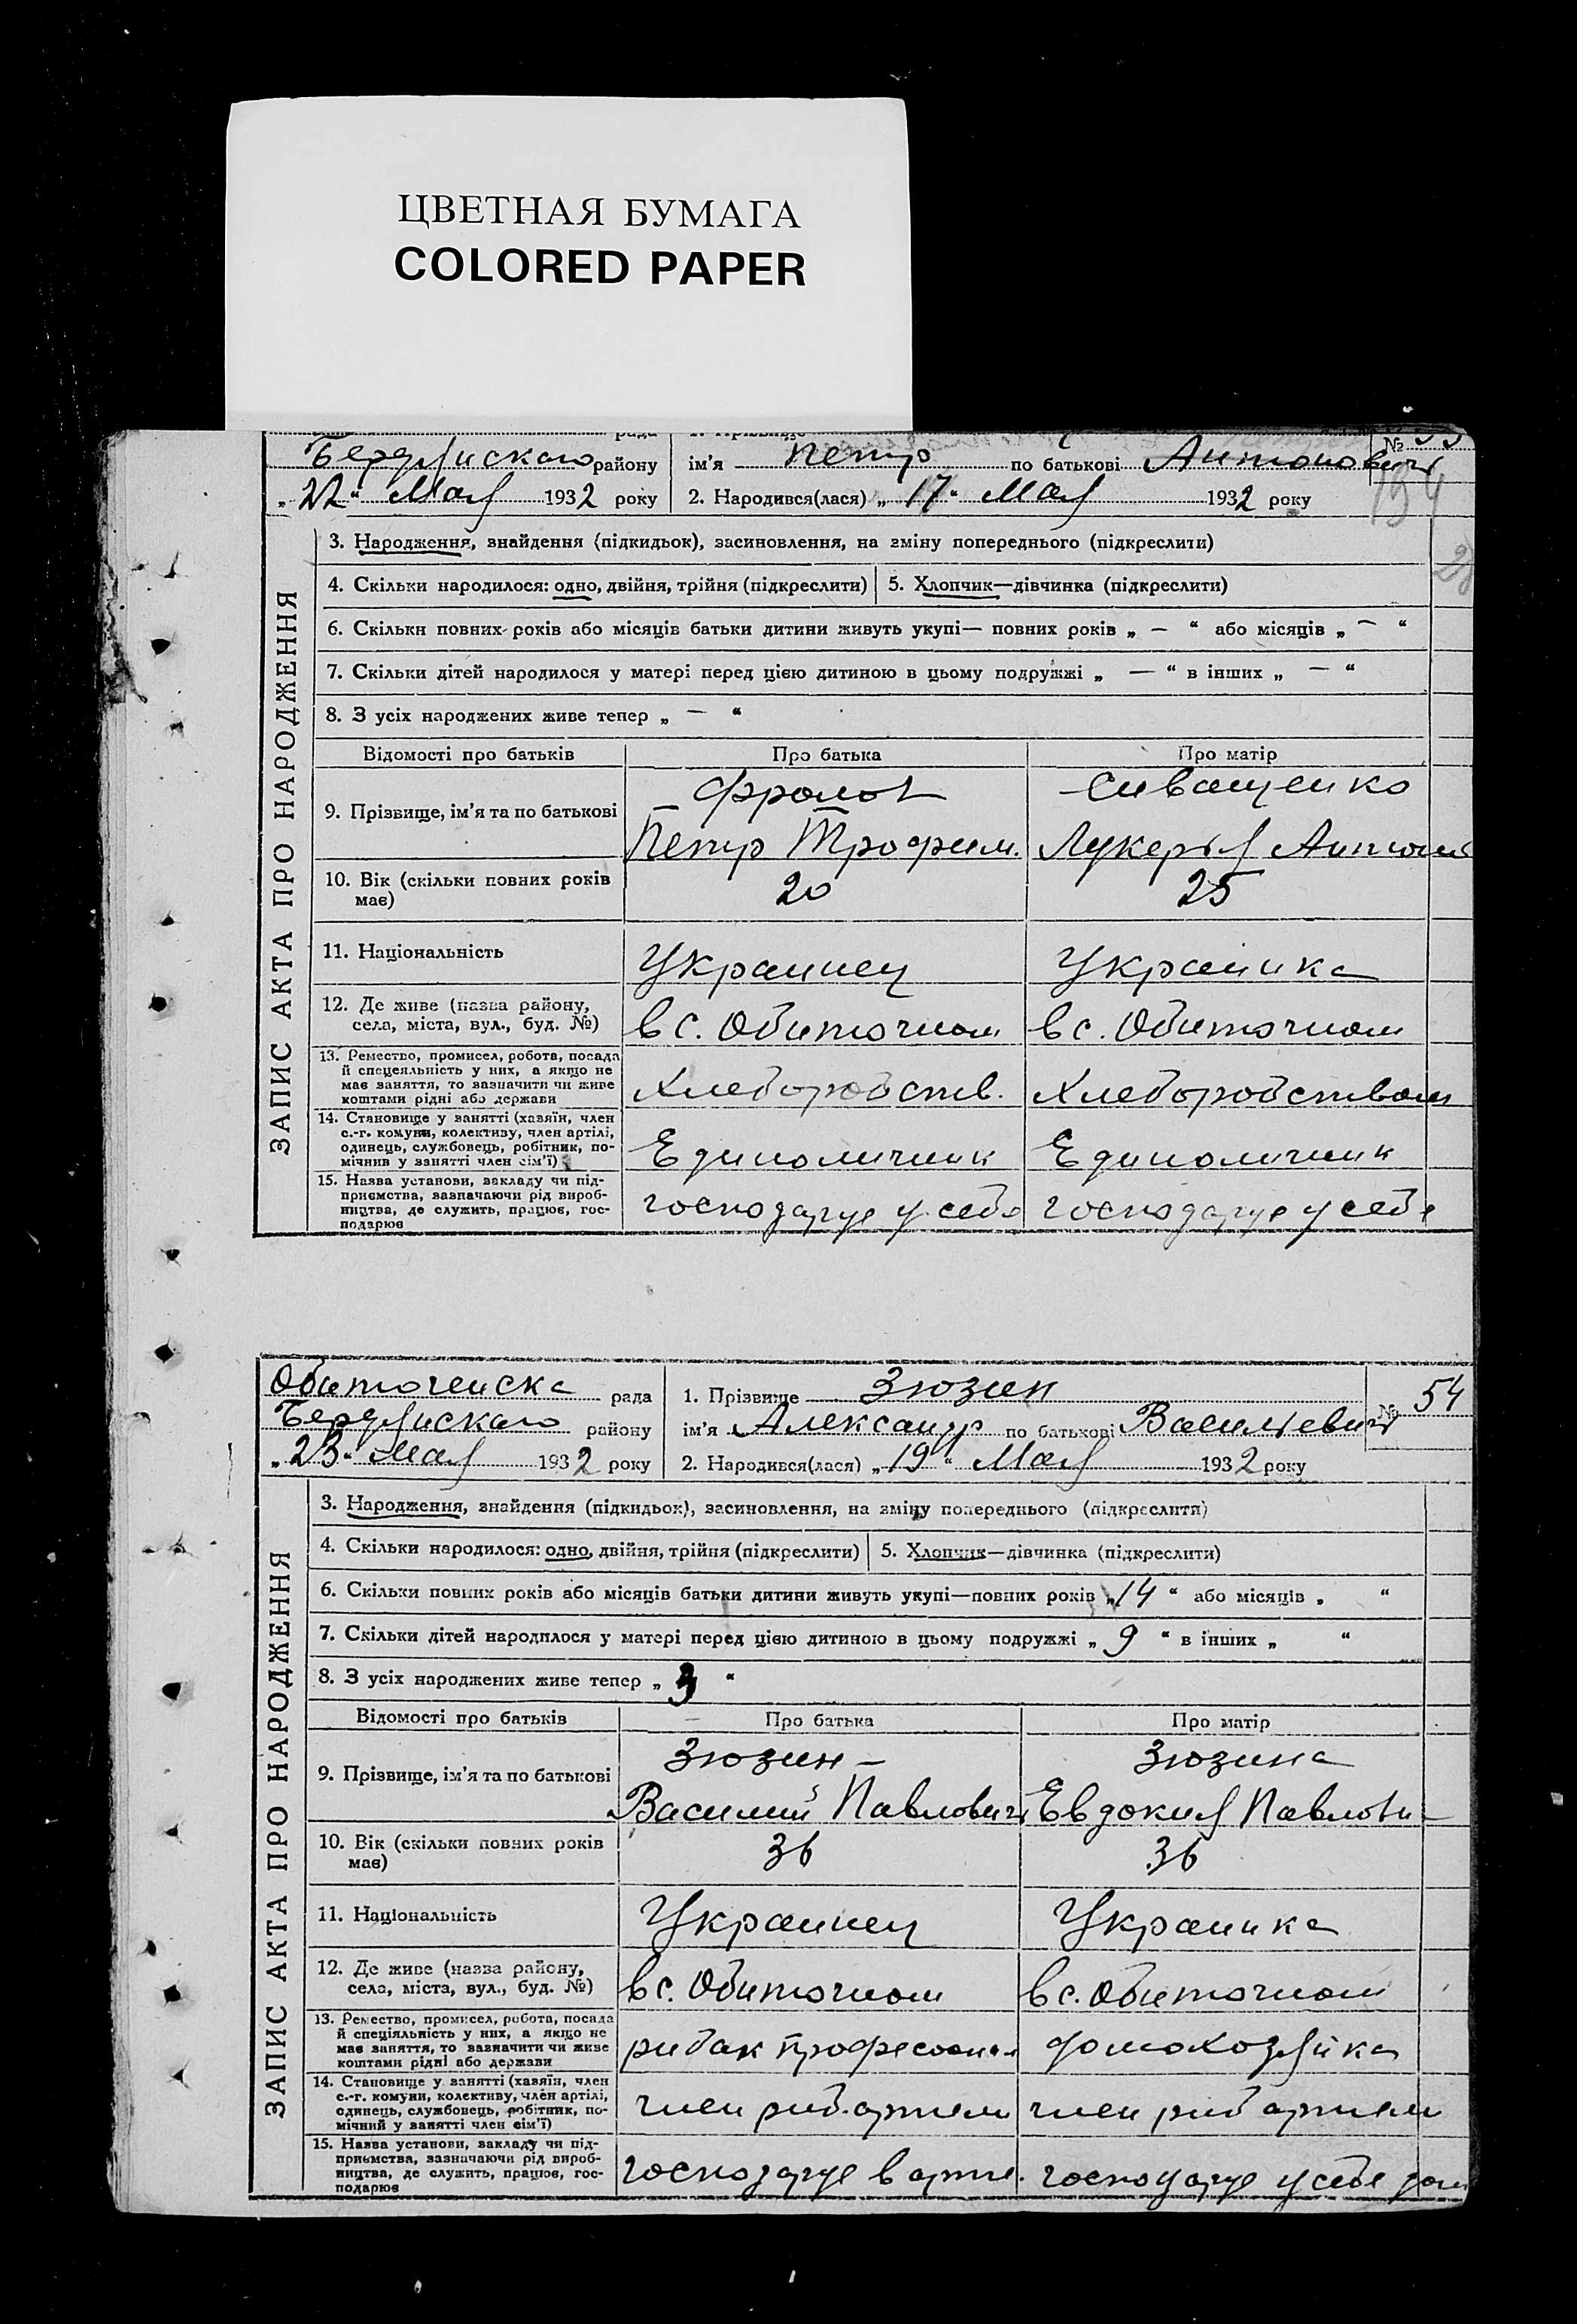 ЦВЕТНАЯ БУМАГА
COLORED PAPER
Бердянскаго району ім'я Петр по батькові Антонович №
„22“ Мая 1932 року 2. Народився(лася) „17“ Мая 1932 року
194
28
ЗАПИС АКТА ПРО НАРОДЖЕННЯ
3. Народження, знайдення (підкидьок), засиновлення, на зміну попереднього (підкреслити)
4. Скільки народилося: одно, двійня, трійня (підкреслити) 5. Хлопчик—дівчинка (підкреслити)
6. Скільки повних років або місяців батьки дитини живуть укупі— повних років „ — “ або місяців „ — “
7. Скільки дітей народилося у матері перед цією дитиною в цьому подружжі „ — “ в інших „ — “
8. З усіх народжених живе тепер „ — “
Відомості про батьків Про батька Про матір
Фролов Сиващенко
9. Прізвище, ім'я та по батькові
Петр Трофим. Лукерья Антон
10. Вік (скільки повних років 20 25
має)
11. Національність Украинец Украинка
12. Де живе (назва району,
села, міста, вул., буд. №) в с. Обиточном в с. Обиточном
13. Ремество, промисел, робота, посада
й спецеяльність у них, а якщо не
має заняття, то зазначити чи живе Хлеборобств. Хлеборобством
коштами рідні або держави
14. Становище у занятті (хазяїн, член
с.-г. комуни, колективу, член артілі,
одинець, службовець, робітник, по- Единоличник Единоличник
мічнив у занятті член сім'ї)
15. Назва установи, закладу чи під-
приємства, зазначаючи рід вироб-
ництва, де служить, працює, гос- господарує у себе господарує у себе
подарює
Обиточенска рада 1. Прізвище Зюзин № 54
Бердянскаго району ім'я Александр по батькові Васильевич
„23“ Мая 1932 року 2. Народився(лася) „19“ Мая 1932 року
ЗАПИС АКТА ПРО НАРОДЖЕННЯ
3. Народження, знайдення (підкидьок), засиновлення, на зміну попереднього (підкреслити)
4. Скільки народилося: одно, двійня, трійня (підкреслити) 5. Хлопчик—дівчинка (підкреслити)
6. Скільки повних років або місяців батьки дитини живуть укупі—повних років „14“ або місяців „ “
7. Скільки дітей народилося у матері перед цією дитиною в цьому подружжі „9“ в інших „ “
8. З усіх народжених живе тепер „3“
Відомості про батьків Про батька Про матір
Зюзин — Зюзина
9. Прізвище, ім'я та по батькові
Василий Павлович Евдокия Павловн
10. Вік (скільки повних років 36 36
має)
11. Національність Украинец Украинка
12. Де живе (назва району,
села, міста, вул., буд. №) в с. Обиточном в с. Обиточном
13. Ремество, промисел, робота, посада
й спеціяльність у них, а якщо не
має заняття, то зазначити чи живе рибак професионал домохозяйка
коштами рідні або держави
14. Становище у занятті (хазяїн, член
с.-г. комуни, колективу, член артілі,
одинець, службовець, робітник, по- член риб.артели член риб артели
мічний у занятті член сім'ї)
15. Назва установи, закладу чи під-
приємства, зазначаючи рід вироб-
ництва, де служить, працює, гос- господарує в арте. господарує у себе дом
подарює